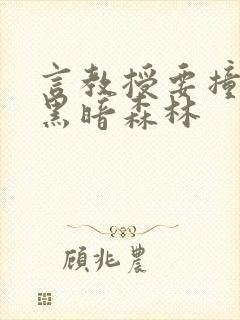 言教授要撞
黑暗森林
顾兆农